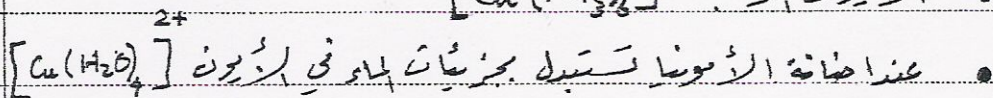 • عند اضافة الأمونيا تستبدل بجزيئات الماء في الأيون [Cu(H₂O)₄]²⁺